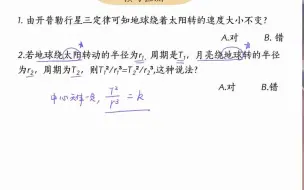 1. 由开普勒行星三定律可知地球绕着太阳转的速度大小不变?
A.对 B. 错
2.若地球绕太阳转动的半径为r₁, 周期是T₁, 月亮绕地球转的半径为r₂, 周期为T₂, 则T₁²/r₁³=T₂²/r₂³,这种说法?
A.对 B. 错
中心天体一定, T²/r³ = k